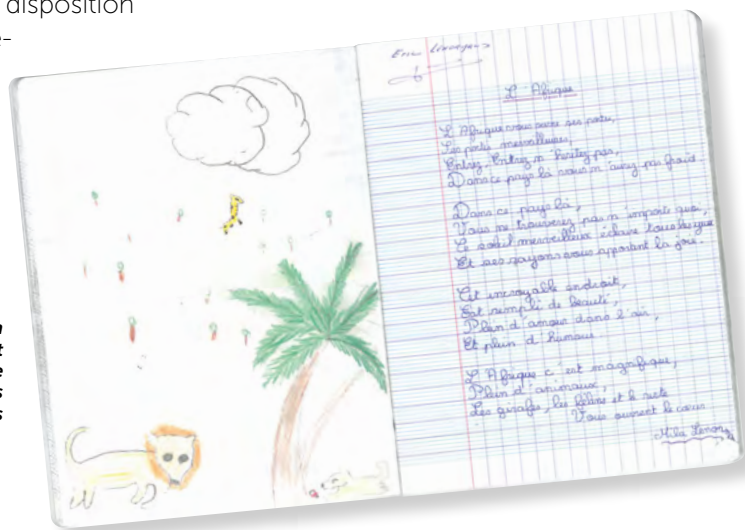 disposition
e-
L'Afrique
L'Afrique vous ouvre ses portes,
Ses portes merveilleuses,
Entrez, Entrez n'hésitez pas,
Dans ce pays là vous n'aurez pas froid.
Dans ce pays là,
Vous ne trouverez pas n'importe quoi,
Ce soleil merveilleux éclaire
Et ses rayons vous apportent la joie.
Cet incroyable endroit,
Est rempli de beauté,
Plein d'amour dans l'air,
Et plein d'humour
L'Afrique c'est magnifique,
Plein d'animaux,
Les girafes, les lions et le reste
Vous ouvrent le cœur
n
t
e
s
s